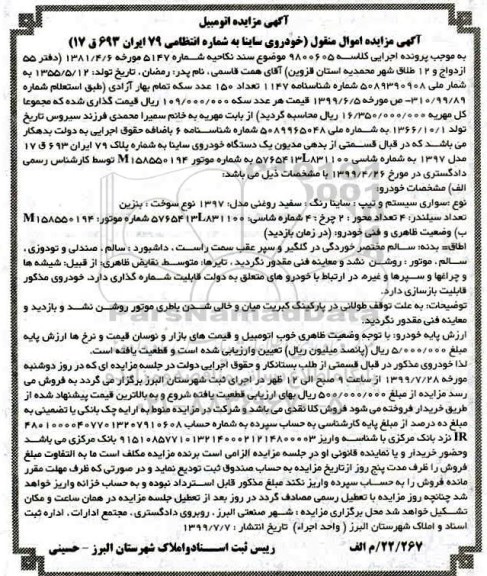 آگهی مزایده اتومبیل
آگهی مزایده اموال منقول (خودروی ساینا به شماره انتظامی ۷۹ ایران ۶۹۳ ق ۱۷)
به موجب پرونده اجرایی کلاسه ۹۸۰۰۶۰۵ موضوع سند نکاحیه شماره ۵۱۴۷ مورخه ۱۳۸۱/۴/۶ (دفتر ۵۵
ازدواج و ۱۲ طلاق شهر محمدیه استان قزوین) آقای همت قاسمی، نام پدر: رمضان، تاریخ تولد: ۱۳۵۵/۵/۱۲ به
شمار ملی ۵۰۸۹۳۹۰۹۰۸ شماره شناسنامه ۱۱۴۷ تعداد ۱۵۰ عدد سکه تمام بهار آزادی (طبق استعلام شماره
۳۱۰/۹۹/۸۹- ص مورخه ۱۳۹۹/۶/۵ قیمت هر عدد سکه ۱۰۹/۰۰۰/۰۰۰ ریال قیمت گذاری شده که مجموعا
کل مهریه ۱۶/۳۵۰/۰۰۰/۰۰۰ ریال محاسبه گردید) از بابت مهریه به خانم سمیرا محمدی فرزند سیروس تاریخ
تولد ۱۳۶۶/۱۰/۱ به شماره ملی ۵۰۸۹۹۶۵۰۴۸ شماره شناسنامه ۶ باضافه حقوق اجرایی به دولت بدهکار
می باشد که در قبال قسمتی از بدهی مدیون یک دستگاه خودروی ساینا به شماره پلاک ۷۹ ایران ۶۹۳ ق ۱۷
مدل ۱۳۹۷ به شماره شاسی ۵۷۶۵۴۱۳L۸۳۱۱۰۰ به شماره موتور M۱۵۸۵۵۰۱۹۴ توسط کارشناس رسمی
دادگستری در مورخ ۱۳۹۹/۴/۲۶ با مشخصات ذیل می باشد:
الف) مشخصات خودرو:
نوع :سواری سیستم و تیپ : ساینا رنگ : سفید روغنی مدل: ۱۳۹۷ نوع سوخت : بنزین
تعداد سیلندر: ۴ تعداد محور : ۲ چرخ : ۴ شماره شاسی: ۵۷۶۵۴۱۳L۸۳۱۱۰۰ شماره موتور: M۱۵۸۵۵۰۱۹۴
ب) وضعیت ظاهری و فنی خودرو: (در زمان بازدید)
اطاق= بدنه: سالم مختصر خوردگی در گلگیر و سپر عقب سمت راست ، داشبورد : سالم ، صندلی و تودوزی ،
سالم ، موتور : روشن نشد و معاینه فنی مقدور نگردید . تایرها: متوسط. نقایض ظاهری: از قبیل: شیشه ها
و چراغها و سپرها و غیره. در ارتباط با خودرو های متعلق به دولت قابلیت شماره گذاری دارد. خودروی مذکور
قابلیت بازسازی دارد.
توضیحات: به علت توقف طولانی در پارکینگ کبریت میان و خالی شدن باطری موتور روشن نشد و بازدید و
معاینه فنی مقدور نگردید.
ارزش پایه خودرو: با توجه وضعیت ظاهری خوب اتومبیل و قیمت های بازار و نوسان قیمت و نرخ ها ارزش پایه
مبلغ ۵/۰۰۰/۰۰۰ ریال (پانصد میلیون ریال) تعیین وارزیابی شده است و قطعیت یافته است.
لذا خودروی مذکور در قبال قسمتی از طلب بستانکار و حقوق اجرایی دولت در جلسه مزایده ای که در روز دوشنبه
مورخه ۱۳۹۹/۷/۲۸ از ساعت ۹ صبح الی ۱۲ ظهر در اجرای ثبت شهرستان البرز برگزار می گردد به فروش می
رسد مزایده از مبلغ ۵۰۰/۰۰۰/۰۰۰ ریال بهای ارزیابی قطعیت یافته شروع و به بالاترین قیمت پیشنهاد شده از
طریق خریدار فروخته می شود فروش کلا نقدی می باشد و شرکت در مزایده منوط به ارایه چک بانکی یا تضمینی به
مبلغ ده درصد از مبلغ پایه کارشناسی به حساب سپرده به شماره حساب ۴۸۰۱۰۰۰۰۴۰۷۷۰۱۳۲۰۷۹۱۰۶۰۸
IR نزد بانک مرکزی با شناسه واریز ۹۱۵۱۰۸۵۷۷۱۰۱۳۲۱۴۰۰۰۲۱۲۱۴۸۰۰۰۰۳ بانک مرکزی می باشد
وحضور خریدار و یا نماینده قانونی او در جلسه مزایده الزامی است برنده مزایده مکلف است ما به التفاوت مبلغ
فروش را ظرف مدت پنج روز ازتاریخ مزایده به حساب صندوق ثبت تودیع نماید و در صورتی که ظرف مهلت مقرر
مانده فروش را به حساب سپرده واریز نکند مبلغ مذکور قابل استرداد نبوده و به حساب خزانه واریز خواهد
شد چنانچه روز مزایده با تعطیل رسمی مصادف گردد در روز بعد از تعطیل جلسه مزایده در همان ساعت و مکان
تشکیل خواهد شد محل برگزاری مزایده : شهر صنعتی البرز ، روبروی دادگستری ، مجتمع ادارات ، اداره ثبت
اسناد و املاک شهرستان البرز ( واحد اجراء) تاریخ انتشار : ۱۳۹۹/۷/۷
۲۲/۲۶۷/م الف رییس ثبت اسناد واملاک شهرستان البرز - حسینی